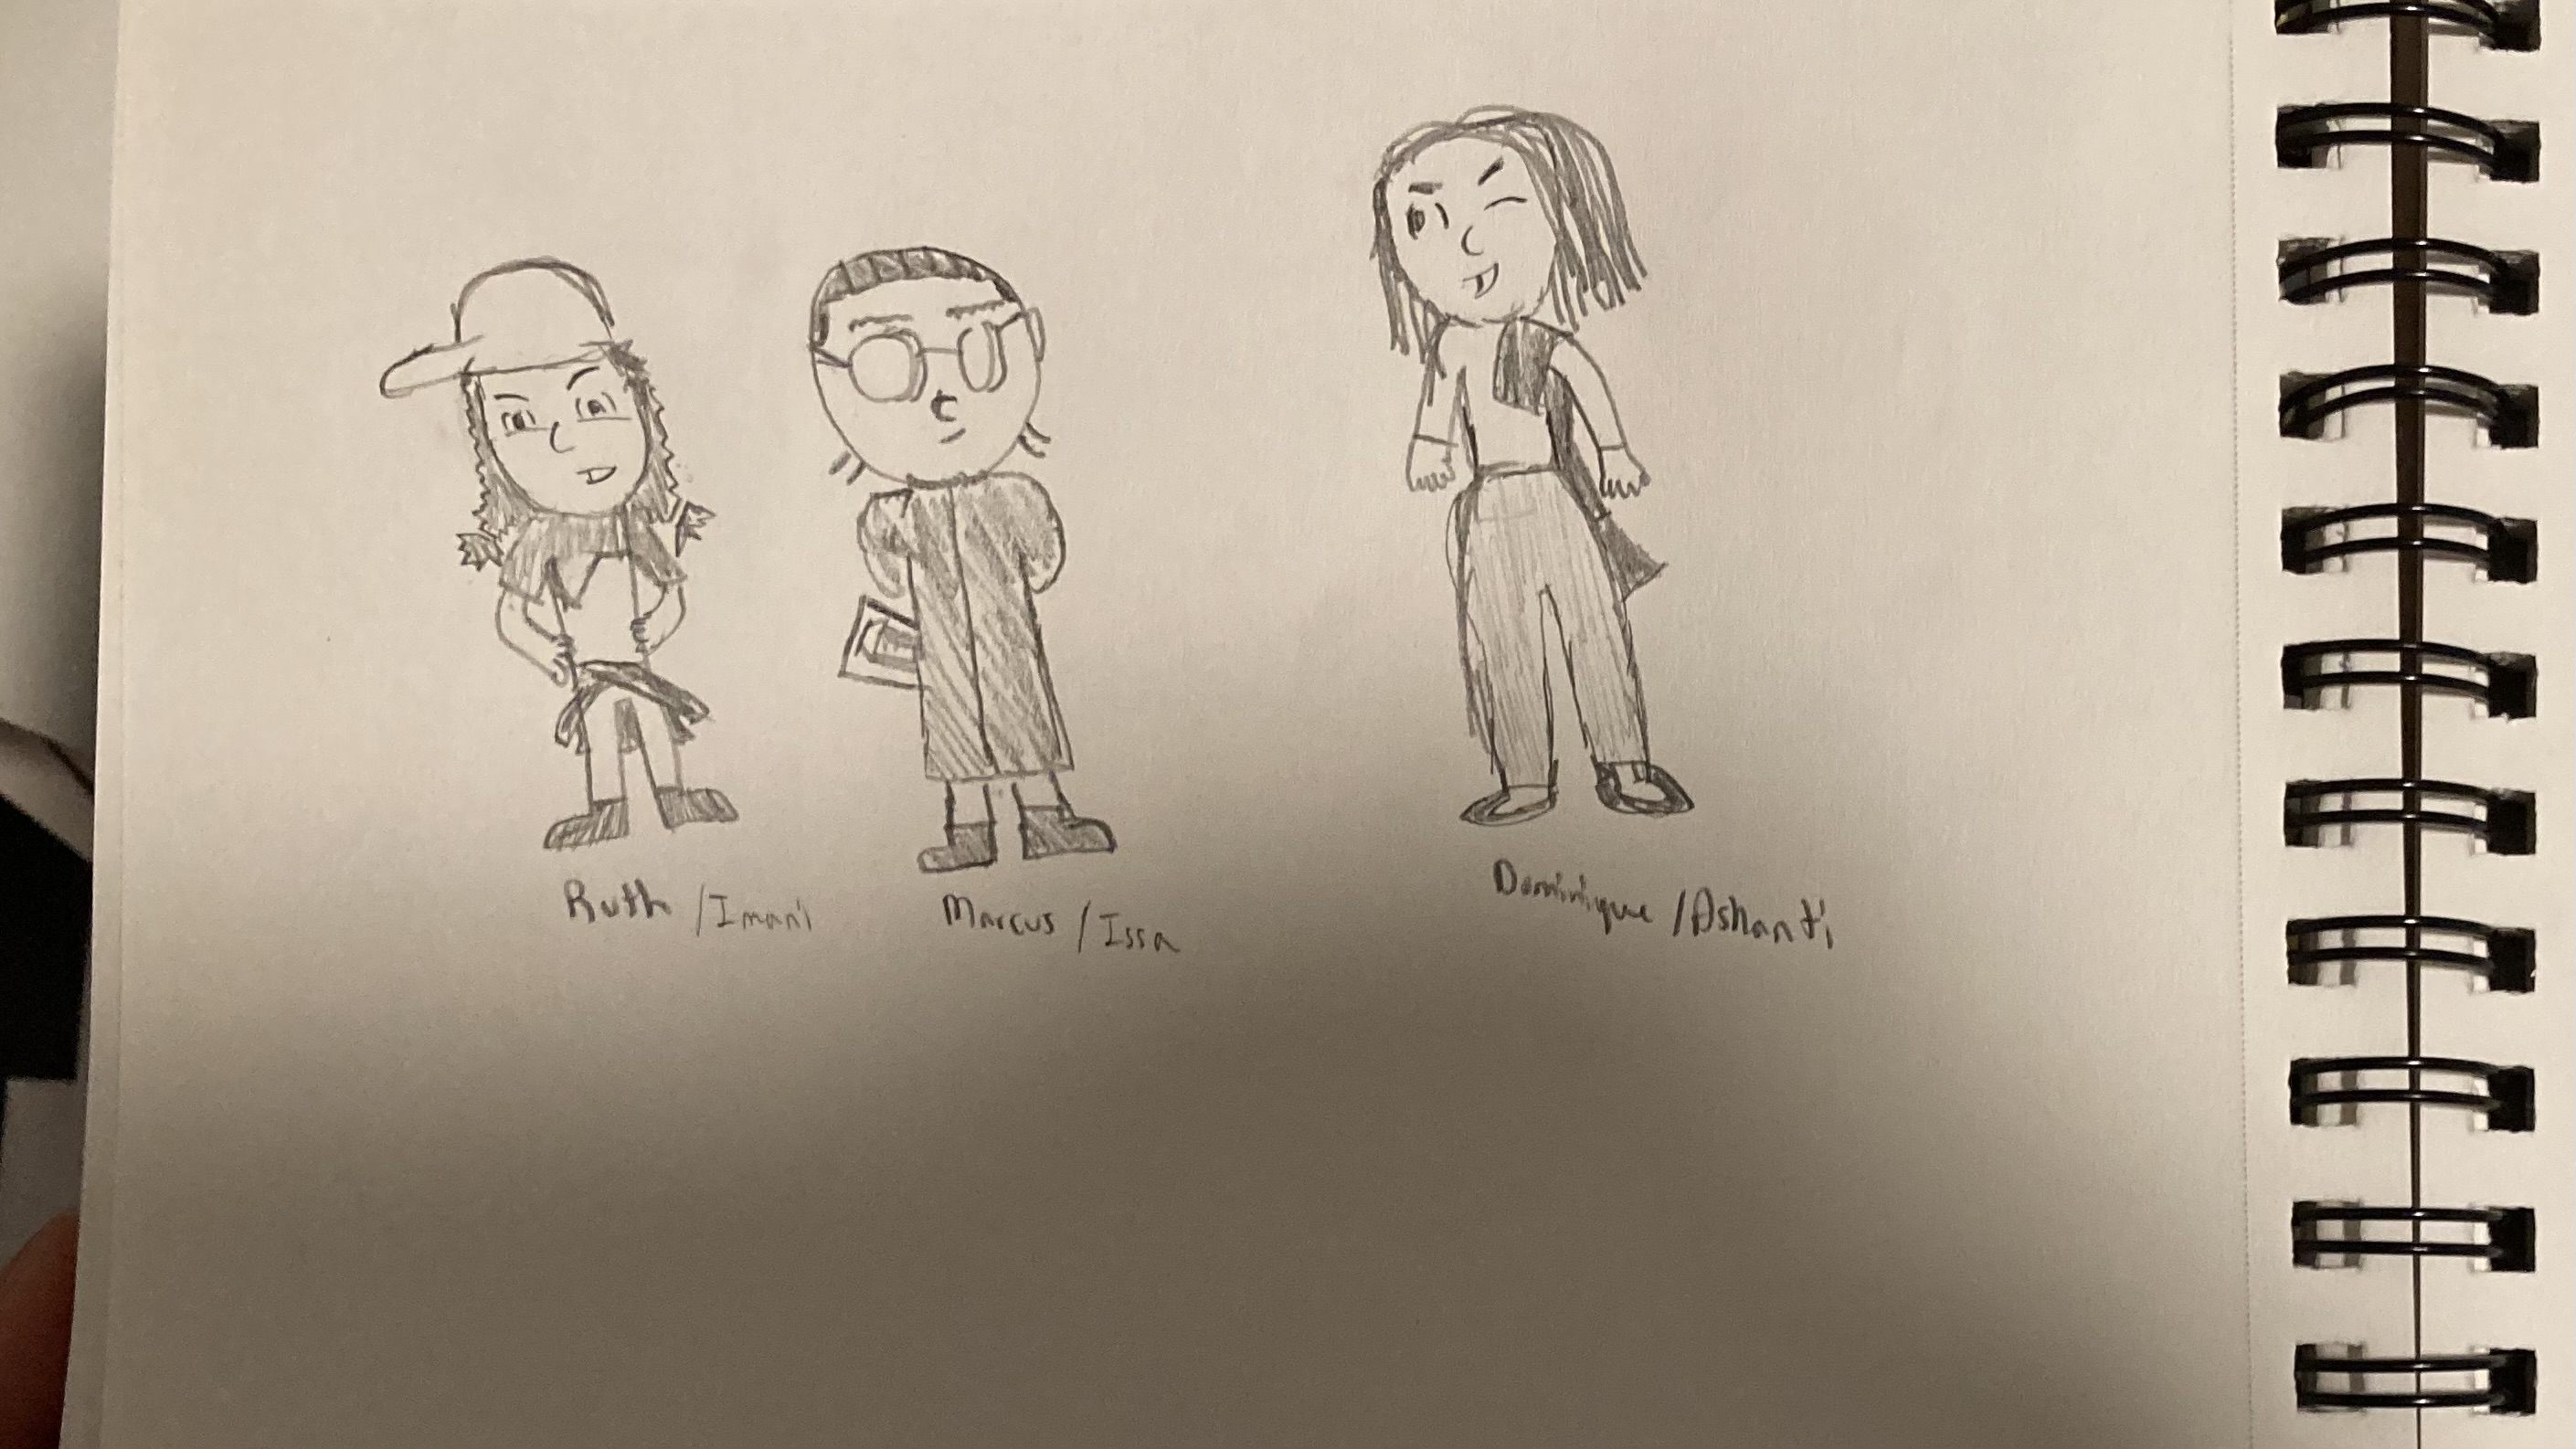 Ruth /Imani
Marcus /Issa
Dominique /Ashanti